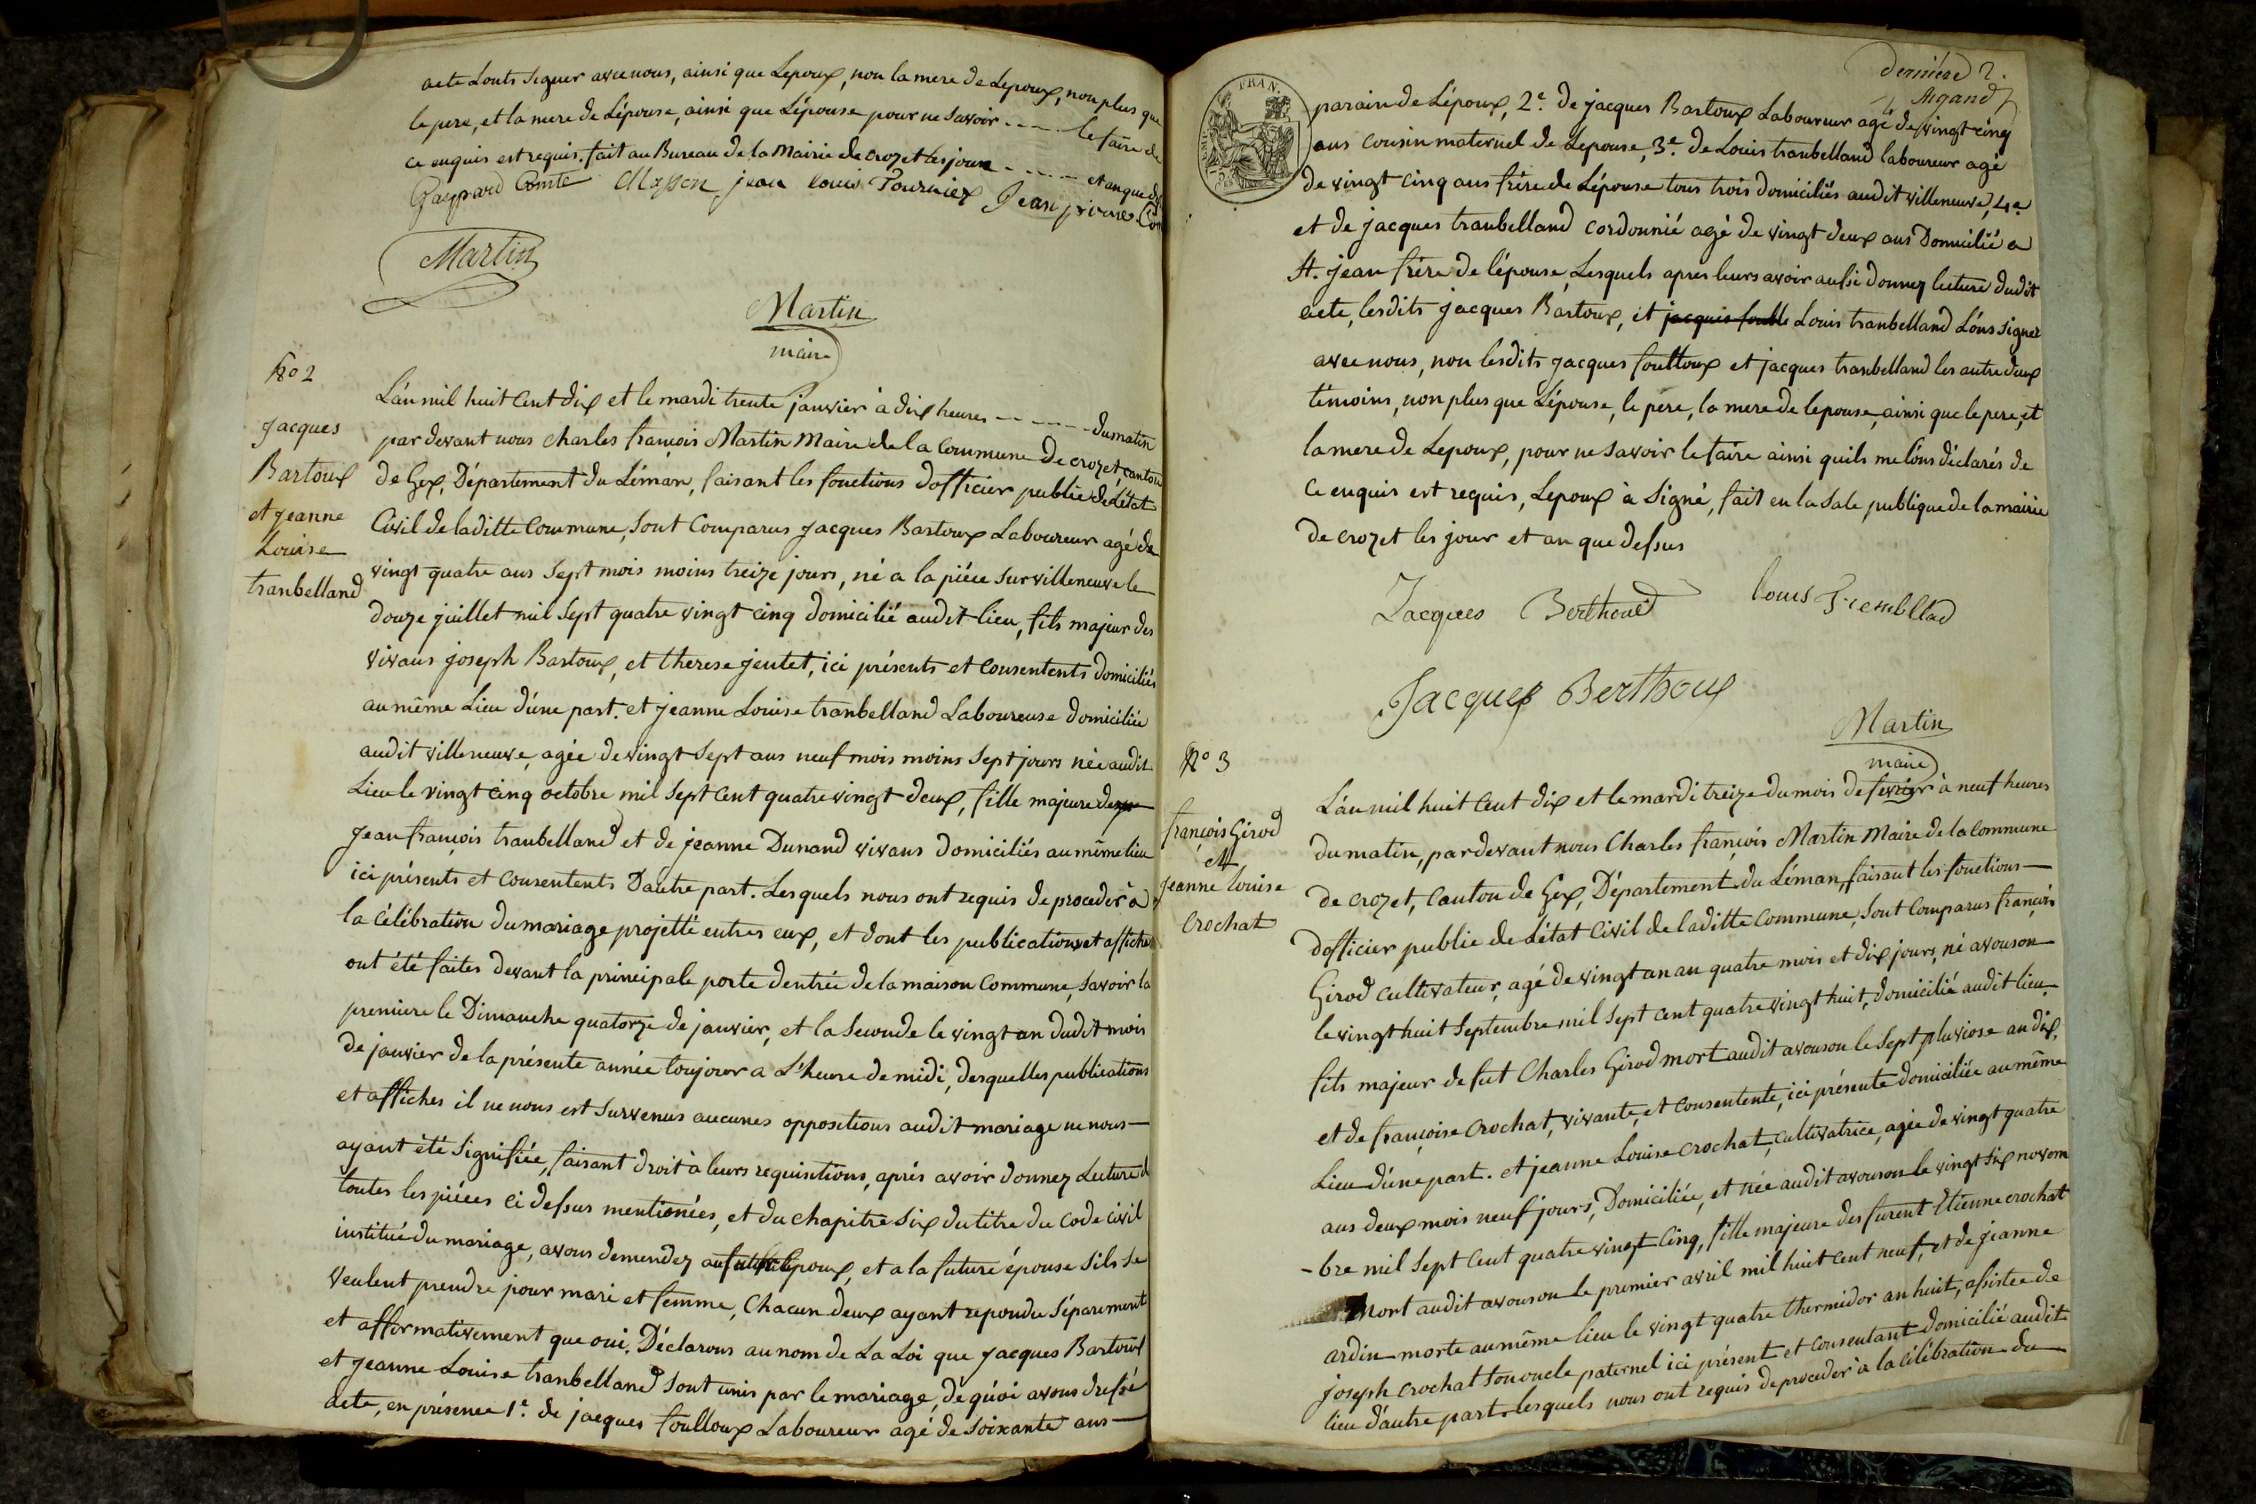 acte Lonts signer avec nous, ainsi que Lepoux, non la mere de Lepoux, non plus que
le pere, et la mere de Lépouse, ainsi que Lépouse pour ne savoir - - - - le faire de
ce enquis est requis. fait au Bureau de la Mairie de crozet les jour - - - - et an que de
Gaspard Comte Masson jean louis Tournier Jean pierre Com
Martin
Martin
maire
No 2
Jacques
Bartoux
et jeanne
Louise
tranbelland
L'an mil huit cent dix et le mardi trente janvier à dix heures - - - - - - du matin
par devant nous charles françois Martin Maire de la Commune de crozet, canton
de Gex, Département du Léman, faisant les fonctions d'officier public de L'état
Civil de laditte Commune, sont Comparus Jacques Bartoux Laboureur agé de
vingt quatre ans sept mois moins treize jours, né a la piéce sur villeneuve le
douze juillet mil sept quatre vingt cinq domicilié audit lieu, fils majeur des
vivans joseph Bartoux, et therese jentet, ici présents et Consentents domiciliés
au même Lieu d'une part. et jeanne Louise tranbelland Laboureuse domiciliée
audit villeneuve, agée de vingt sept ans neuf mois moins sept jours née audit
Lieu le vingt cinq octobre mil sept cent quatre vingt deux, fille majeure de
Jean françois tranbelland et de jeanne Dunand vivans domiciliés au même lieu
ici présents et Consentents D'autre part. Lesquels nous ont requis de proceder à
la célébration du mariage projetté entres eux, et dont les publications et affiches
ont été faites devant la principale porte d'entrée de la maison Commune, savoir la
premiere le Dimanche quatorze de janvier, et la seconde le vingt un dudit mois
de janvier de la présente année toujours a L'heure de midi, desquelles publications
et affiches il ne nous est survenus aucunes oppositions audit mariage ne nous
ayant été signifiée, faisant droit à leurs requisitions, aprés avoir donnez Lecture d
toutes les piéces ci dessus mentionées, et du chapitre six du titre du Code Civil
institué du mariage, avons demendez au futur Epoux, et a la future épouse sils se
veulent prendre pour mari et femme, Chacun deux ayant repondu séparément
et afformativement que oui, Déclarons au nom de La Loi que Jacques Bartoux
et Jeanne Louise tranbelland sont unis par le mariage, de quoi avons dressé
acte, en présence 1e. de jacques foulloux Laboureur agé de soixante ans
dernière 2.
Le Argand
parain de Lépoux, 2e. de jacques Bartoux Laboureur agé de vingt cinq
ans cousin maternel de Lepouse, 3e. de Louis tranbelland laboureur agé
de vingt cinq ans frére de Lépouse tous trois domiciliés audit villeneuve, 4e
et de jacques tranbelland cordonnié agé de vingt deux ans Domicilié a
St. jean frére de lépouse, Lesquels apres leurs avoir aussi donnez lecture dudit
acte, lesdits jacques Bartoux, et jacques foulle Louis tranbelland L'ons signer
avec nous, non lesdits jacques foulloux et jacques tranbelland les autre deux
témoins, non plus que Lépouse, le pére, la mere de lepouse, ainsi que le pere, et
la mere de Lepoux, pour ne savoir le faire ainsi quils me L'ons déclarés de
Ce enquis est requis, Lepoux à signé, fait en la sale publique de la mairie
de crozet les jour et an que dessus
Jacques Berthoud louis Trembllad
Jacques Berthoux
Martin
maire
No 3
françois Girod
et
Jeanne louise
Crochat
L'an mil huit cent dix et le mardi treize du mois de fevrier à neuf heures
du matin, par devant nous Charles françois Martin Maire de la Commune
de crozet, canton de Gex, Département du Léman, faisant les fonctions
d'officier public de L'état Civil de laditte Commune, sont Comparus françois
Girod cultivateur, agé de vingt un an quatre mois et dix jours, né avouson
le vingt huit septembre mil sept cent quatre vingt huit, domicilié audit lieu
fils majeur de fut Charles Girod mort audit avouson le sept pluviose an dix,
et de françoise Crochat, vivante, et Consentente, ici présente domiciliée au même
Lieu d'une part. et jeanne Louise Crochat, cultivatrice, agée de vingt quatre
ans deux mois neuf jours, Domiciliée, et née audit avouson le vingt six novem
-bre mil sept cent quatre vingt Cinq, fille majeure des furent Etienne crochat
Mort audit avouson le premier avril mil huit cent neuf, et de jeanne
ardin morte au même lieu le vingt quatre thermidor an huit, assistée de
joseph crochat son oncle paternel ici présent et Consentant domicilié audit
lieu d'autre part. lesquels nous ont requis de proceder à la célébration du